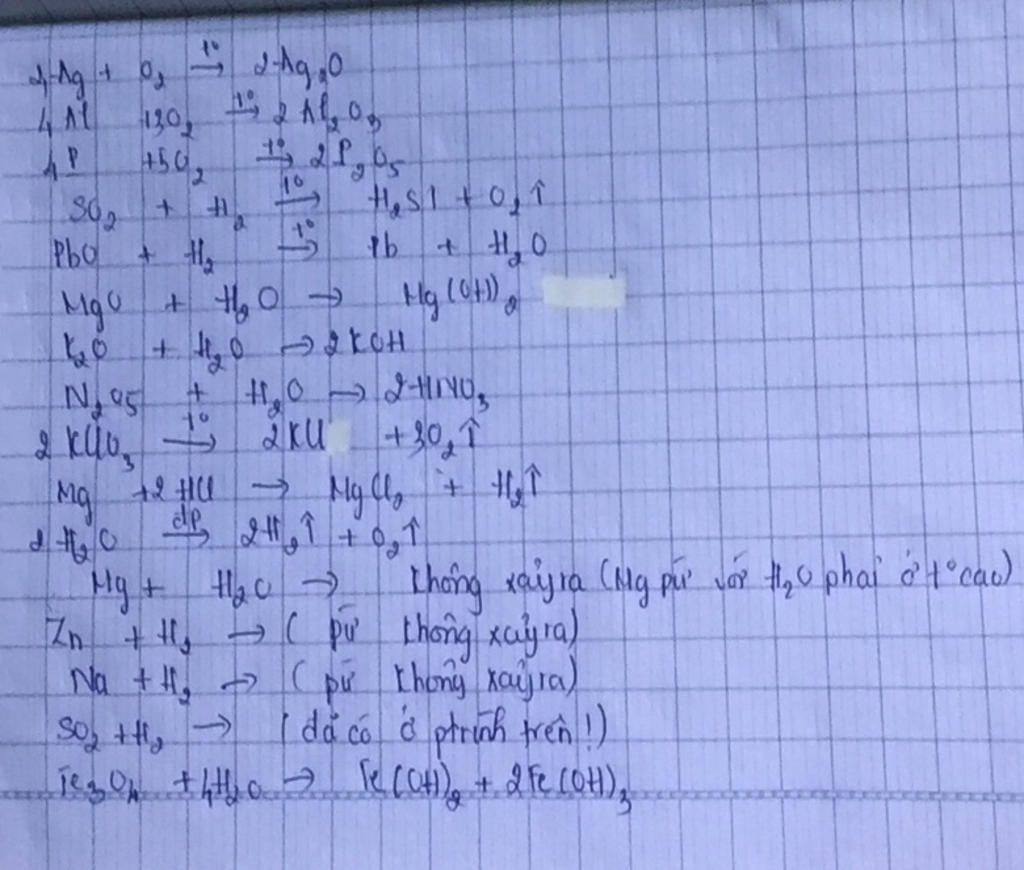 4Ag + O₂ —t°→ 2Ag₂O
4Al +3O₂ —t°→ 2Al₂O₃
4P +5O₂ —t°→ 2P₂O₅
SO₂ + H₂ —t°→ H₂S↓ + O₂↑
PbO + H₂ —t°→ Pb + H₂O
MgO + H₂O → Mg(OH)₂
K₂O + H₂O → 2KOH
N₂O₅ + H₂O → 2HNO₃
2KClO₃ —t°→ 2KCl +3O₂↑
Mg +2HCl → MgCl₂ + H₂↑
2H₂O —đp→ 2H₂↑ + O₂↑
Mg + H₂O → không xảy ra (Mg pứ với H₂O phải ở t° cao)
Zn + H₂ → ( pứ không xảy ra)
Na + H₂ → ( pứ không xảy ra)
SO₂ + H₂ → ( đã có ở ptrình trên!)
Fe₃O₄ +4H₂O → Fe(OH)₂ + 2Fe(OH)₃